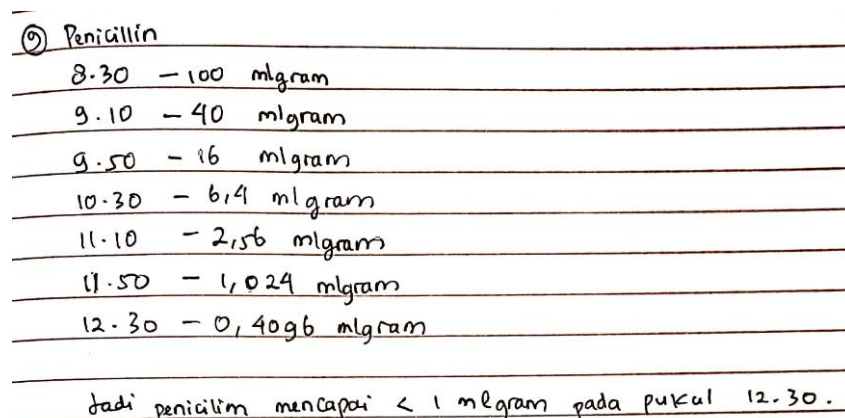 ⑨ Penicillin
8.30 – 100 mlgram
9.10 – 40 mlgram
9.50 – 16 mlgram
10.30 – 6,4 mlgram
11.10 – 2,56 mlgram
11.50 – 1,024 mlgram
12.30 – 0,4096 mlgram
Jadi penicilim mencapai < 1 mlgram pada pukul 12.30.